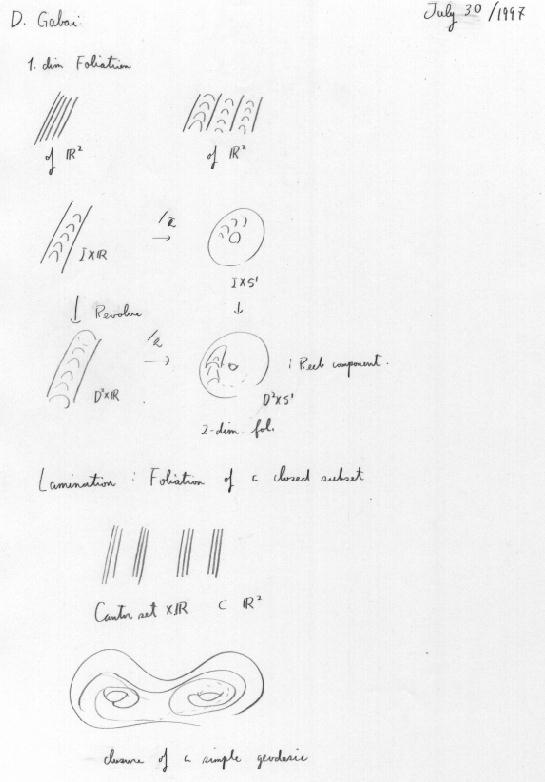 D. Gabai:
July 30 /1997
1. dim Foliation
of ℝ²
of ℝ²
I×ℝ
/ℤ
→
I×S¹
↓ Revolve
↓
D²×ℝ
/ℤ
→
D²×S¹
: Reeb component.
2-dim. fol.
Lamination : Foliation of a closed subset
Cantor set ×ℝ ⊂ ℝ²
closure of a simple geodesic